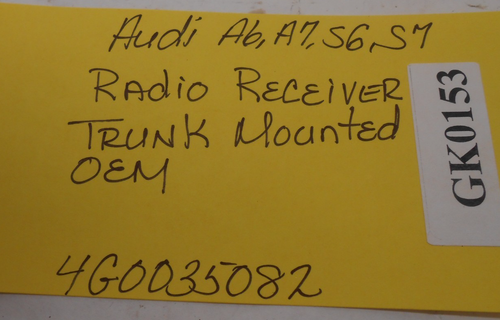 Audi A6, A7, S6, S7
RADio RECEiVER
TRUNK Mounted
OEM
GK0153
4G0035082